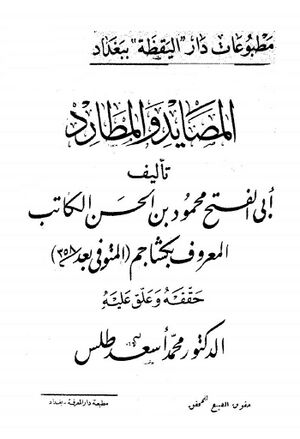 مطبوعات دار "اليقظة" ببغداد
المصايد والمطارد
تأليف
أبي الفتح محمود بن الحسن الكاتب
المعروف بكشاجم (المتوفى بعد ٣٥٨)
حققه وعلق عليه
الدكتور محمد أسعد طلس
مطبعة دار المعرفة - بغداد
حقوق الطبع للمحقق